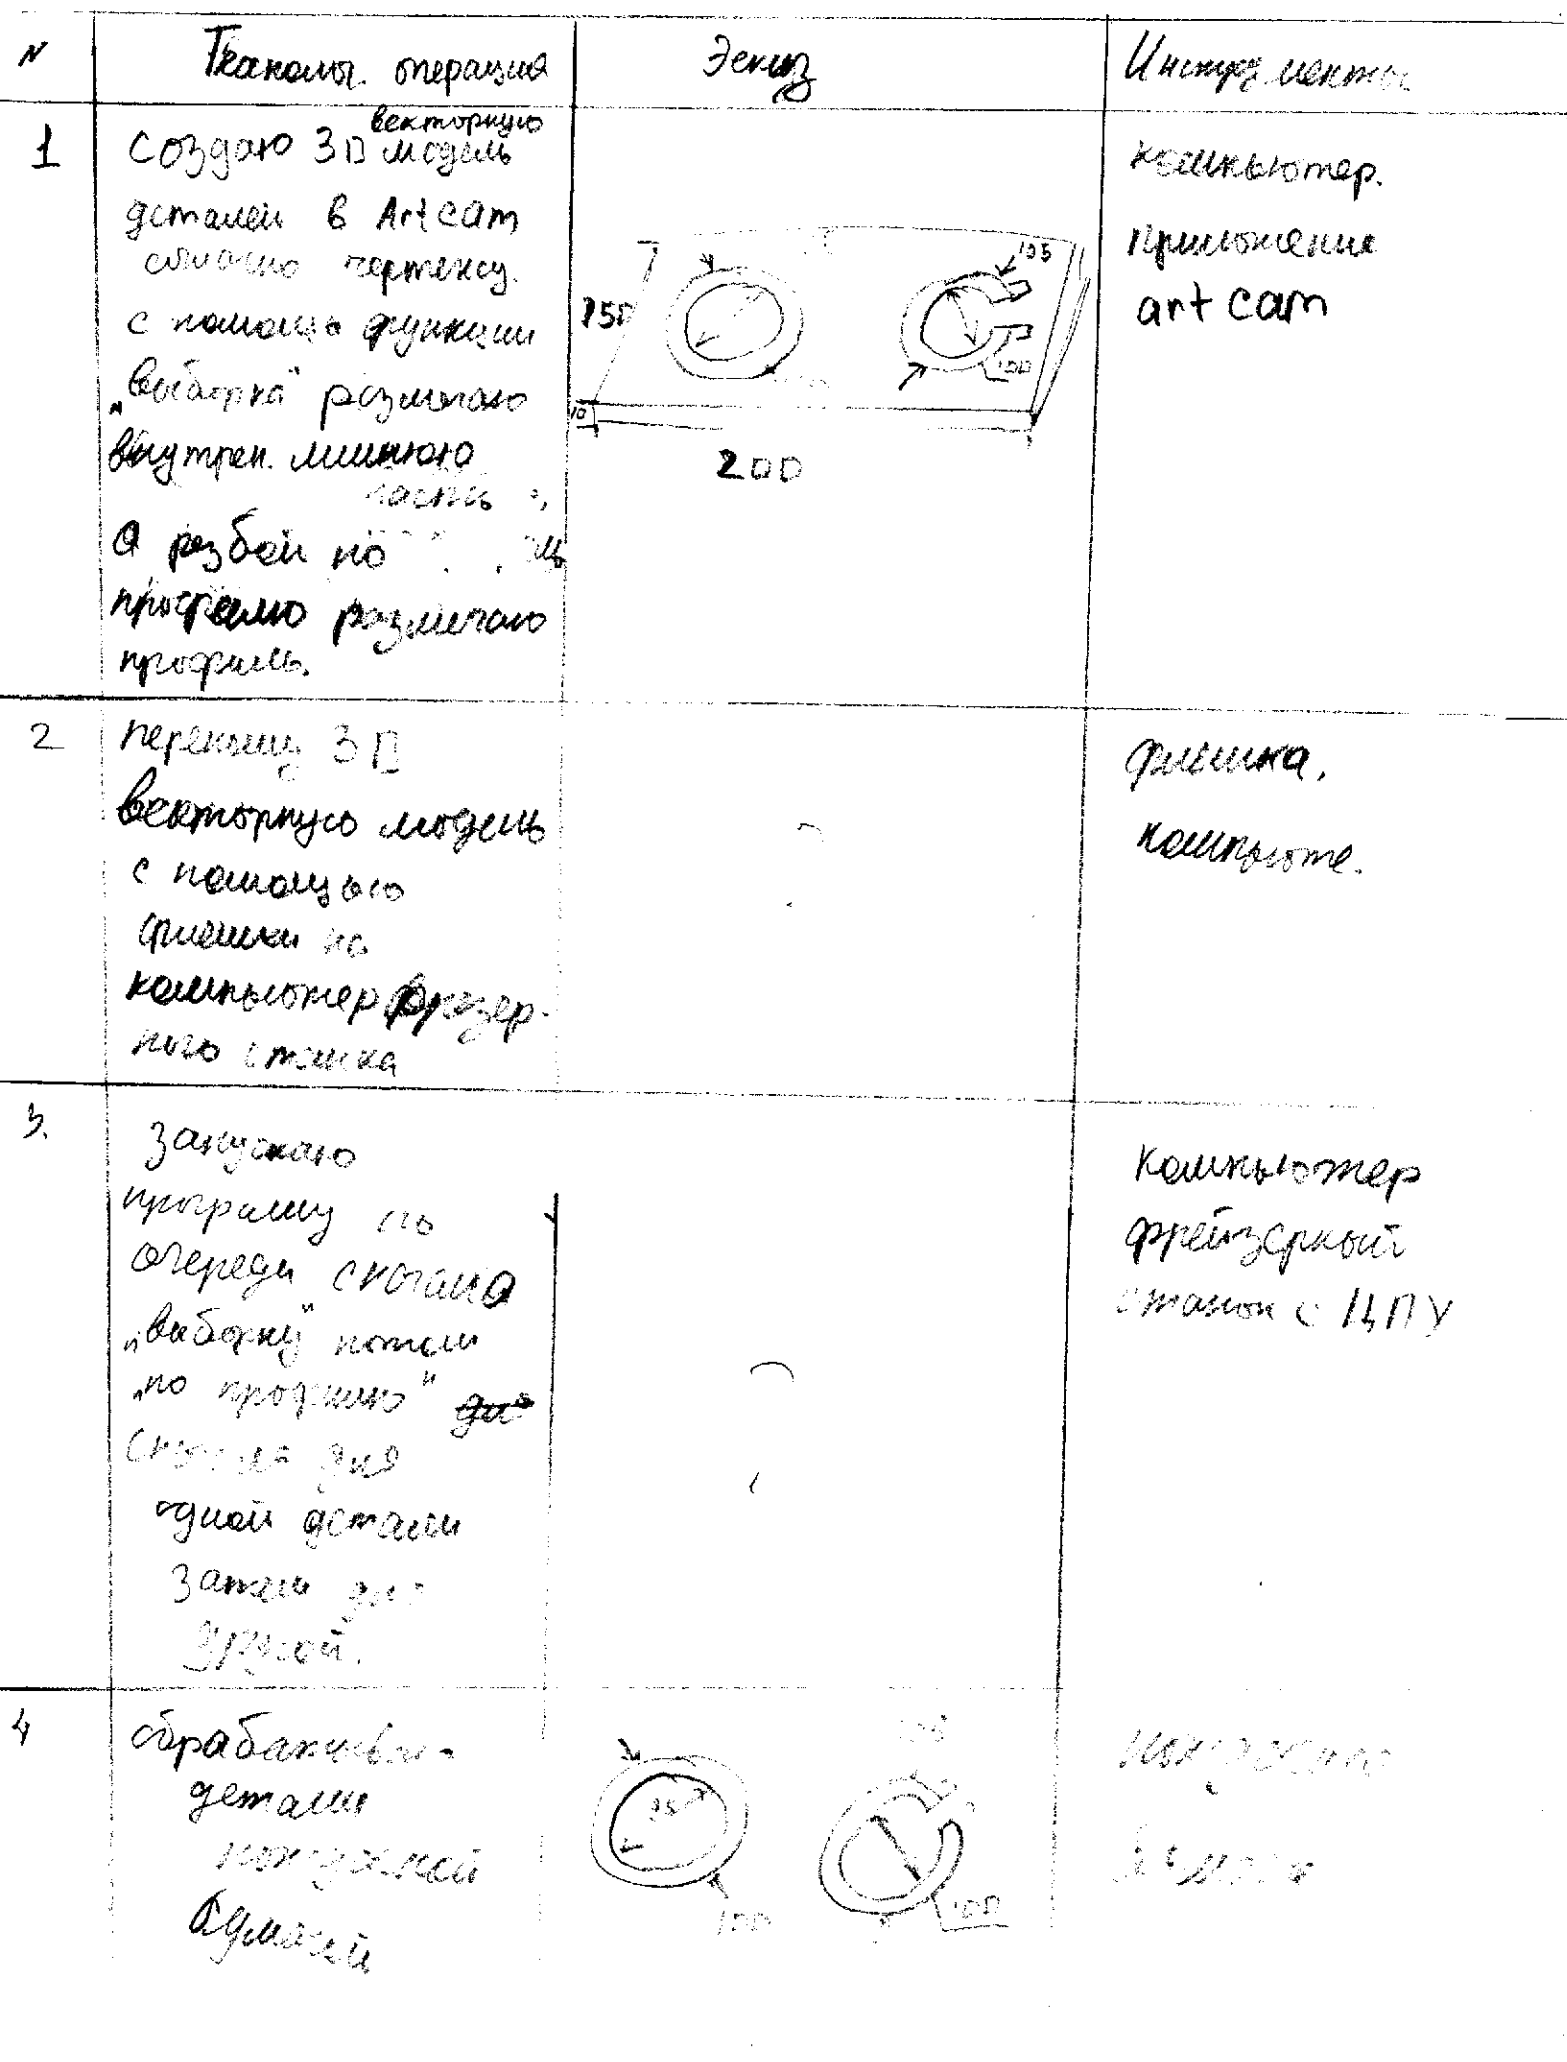 N
Технолог. операция
Эскиз
Инструменты
1
векторную
Создаю 3D модель
деталей в Artcam
согласно чертежу.
с помощь функции
„выборка" размечаю
внутрен. лишнюю
часть,
а резбой по
профилю размечаю
профиль.
150
105
100
10
200
компьютер.
Приложение
art cam
2
перекишу 3D
векторную модель
с помощью
флешки на
компьютер фрезер-
ного станка
флешка,
компьюте.
3.
Запускаю
программу по
очереди сначала
„выборку" потом
„по профилю"
сначала для
одной детали
затем для
другой.
Компьютер
фрейзерный
станок с ЦПУ
4
обрабатываю
детали
наждачной
бумагой
75
100
100